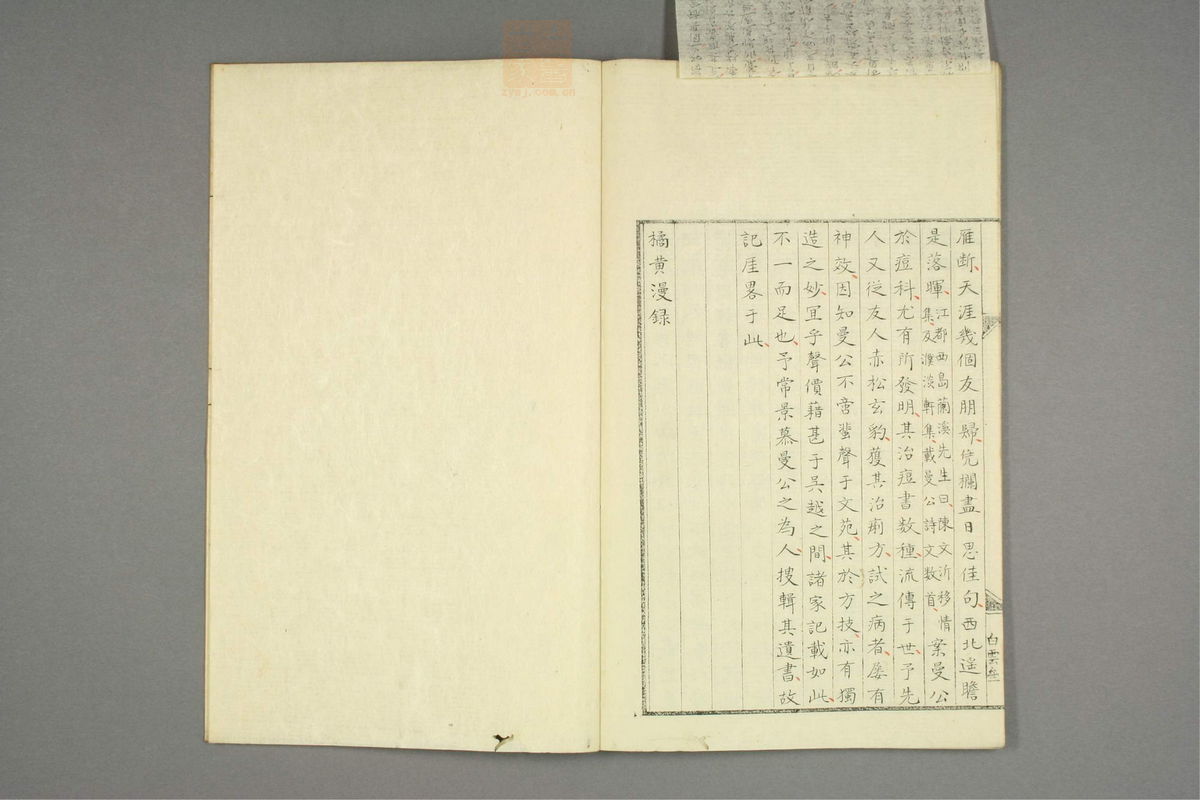 雁断天涯幾個友朋歸凭欄盡日思佳句西北遥瞻
是落暉江都西島蘭溪先生曰陳文沂移情
集及濮淡軒集載曼公詩文数首案曼公
於痘科尤有所發明其治痘書数種流傳于世予先
人又従友人赤松玄豹獲其治痢方試之病者屡有
神效因知曼公不啻蜚聲于文苑其於方技亦有獨
造之妙宜乎聲價藉甚于吳越之間諸家記載如此
不一而足也予常景慕曼公之為人搜輯其遺書故
記厓畧于此
橘黄漫録
白雲
zysj.com.cn